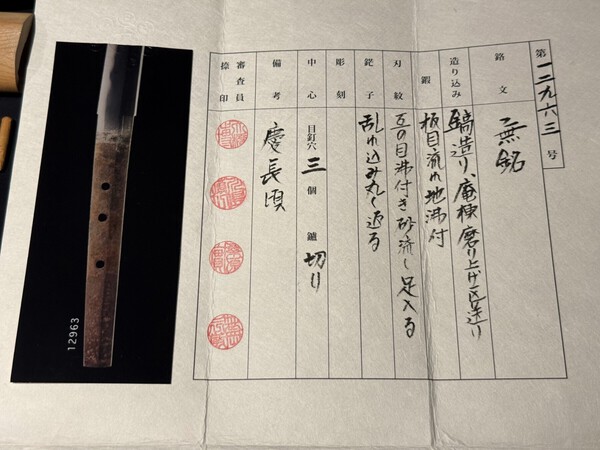 第一二九六三号
銘文
無銘
造り込み
鎬造り、庵棟 磨り上げ区送り
鍛
板目流れ地沸付
刃紋
互の目沸付き砂流し足入る
鋩子
乱れ込み丸く返る
彫刻
中心
目釘穴 三個 鑢 切り
備考
慶長頃
審査員
捺印
12963